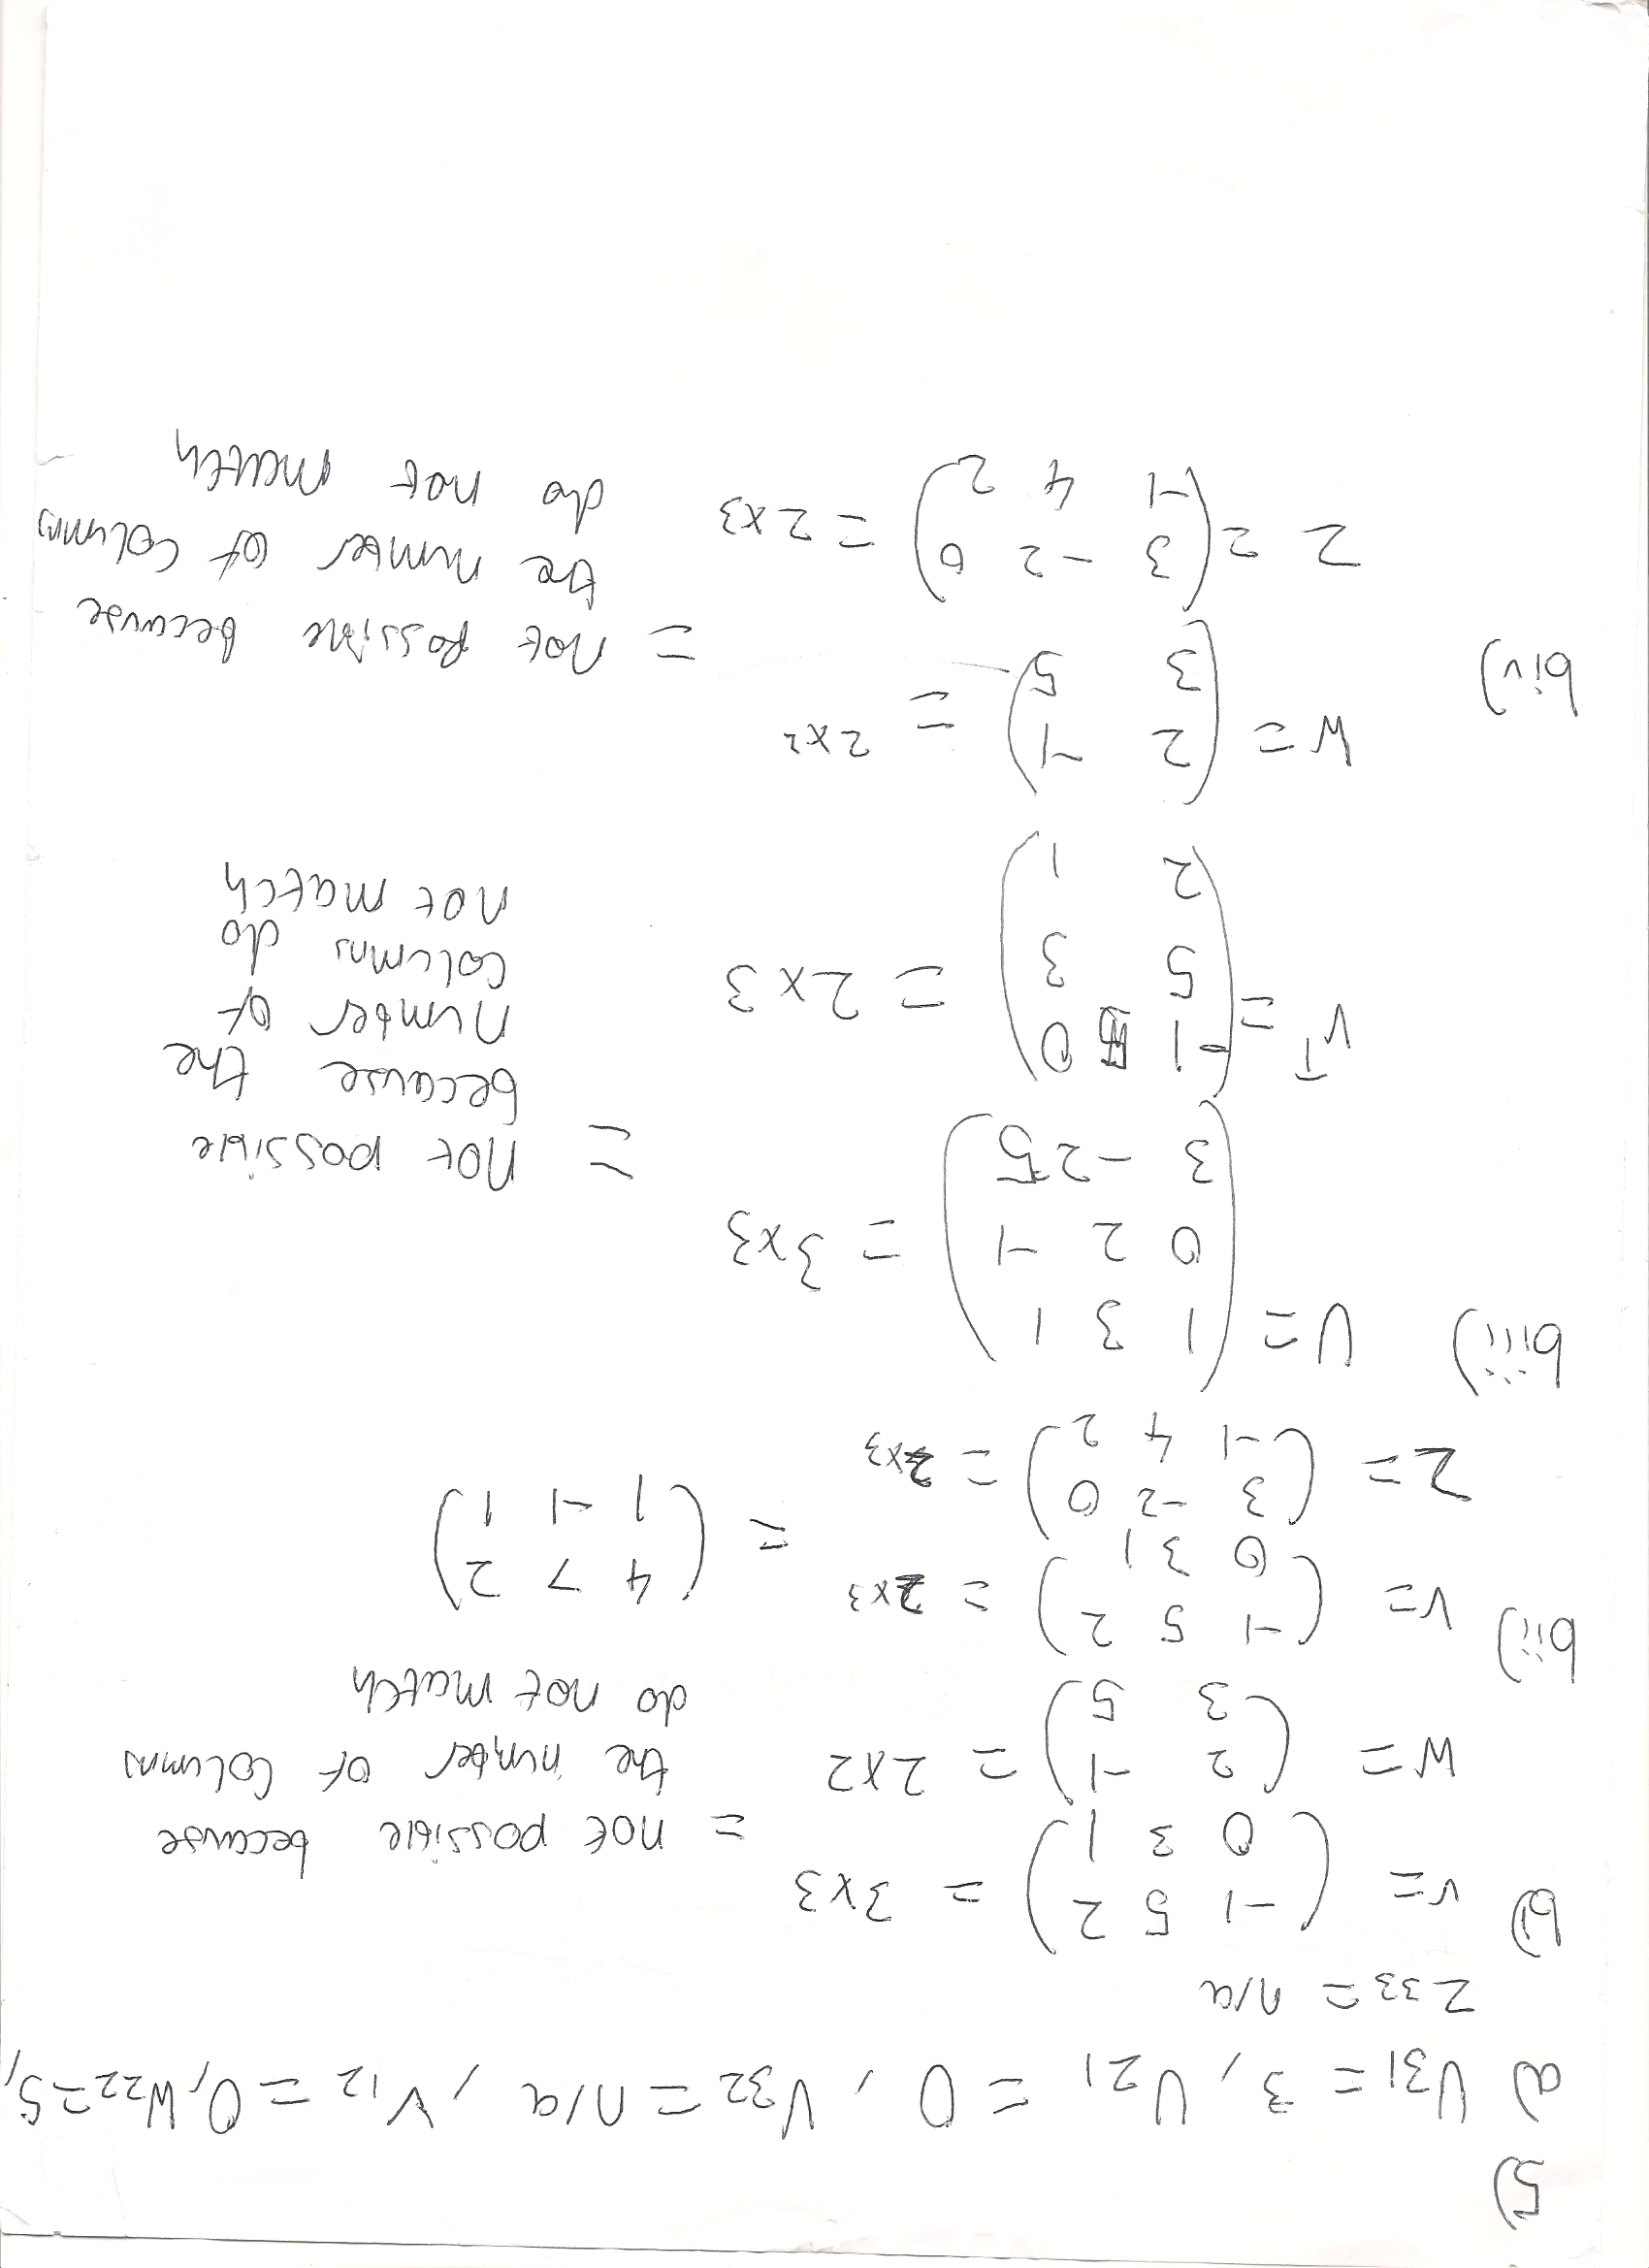 5)
a) U31 = 3, U21 = 0, V32 = n/a, V12 = 0, W22 = 5,
Z33 = n/a
bi) V = (-1 5 2
0 3 1) = 3x3
W = (2 -1
3 5) = 2x2
= not possible because
the number of columns
do not match
bii) V = (-1 5 2
0 3 1) = 2x3
Z = (3 -2 0
-1 4 2) = 2x3
= (4 7 2
1 -1 1)
biii) U = (1 3 1
0 2 -1
3 -2 5) = 3x3
V^T = (-1 0
5 3
2 1) = 2x3
= not possible
because the
number of
columns do
not match
biv) W = (2 -1
3 5) = 2x2
Z = (3 -2 0
-1 4 2) = 2x3
= not possible because
the number of columns
do not match